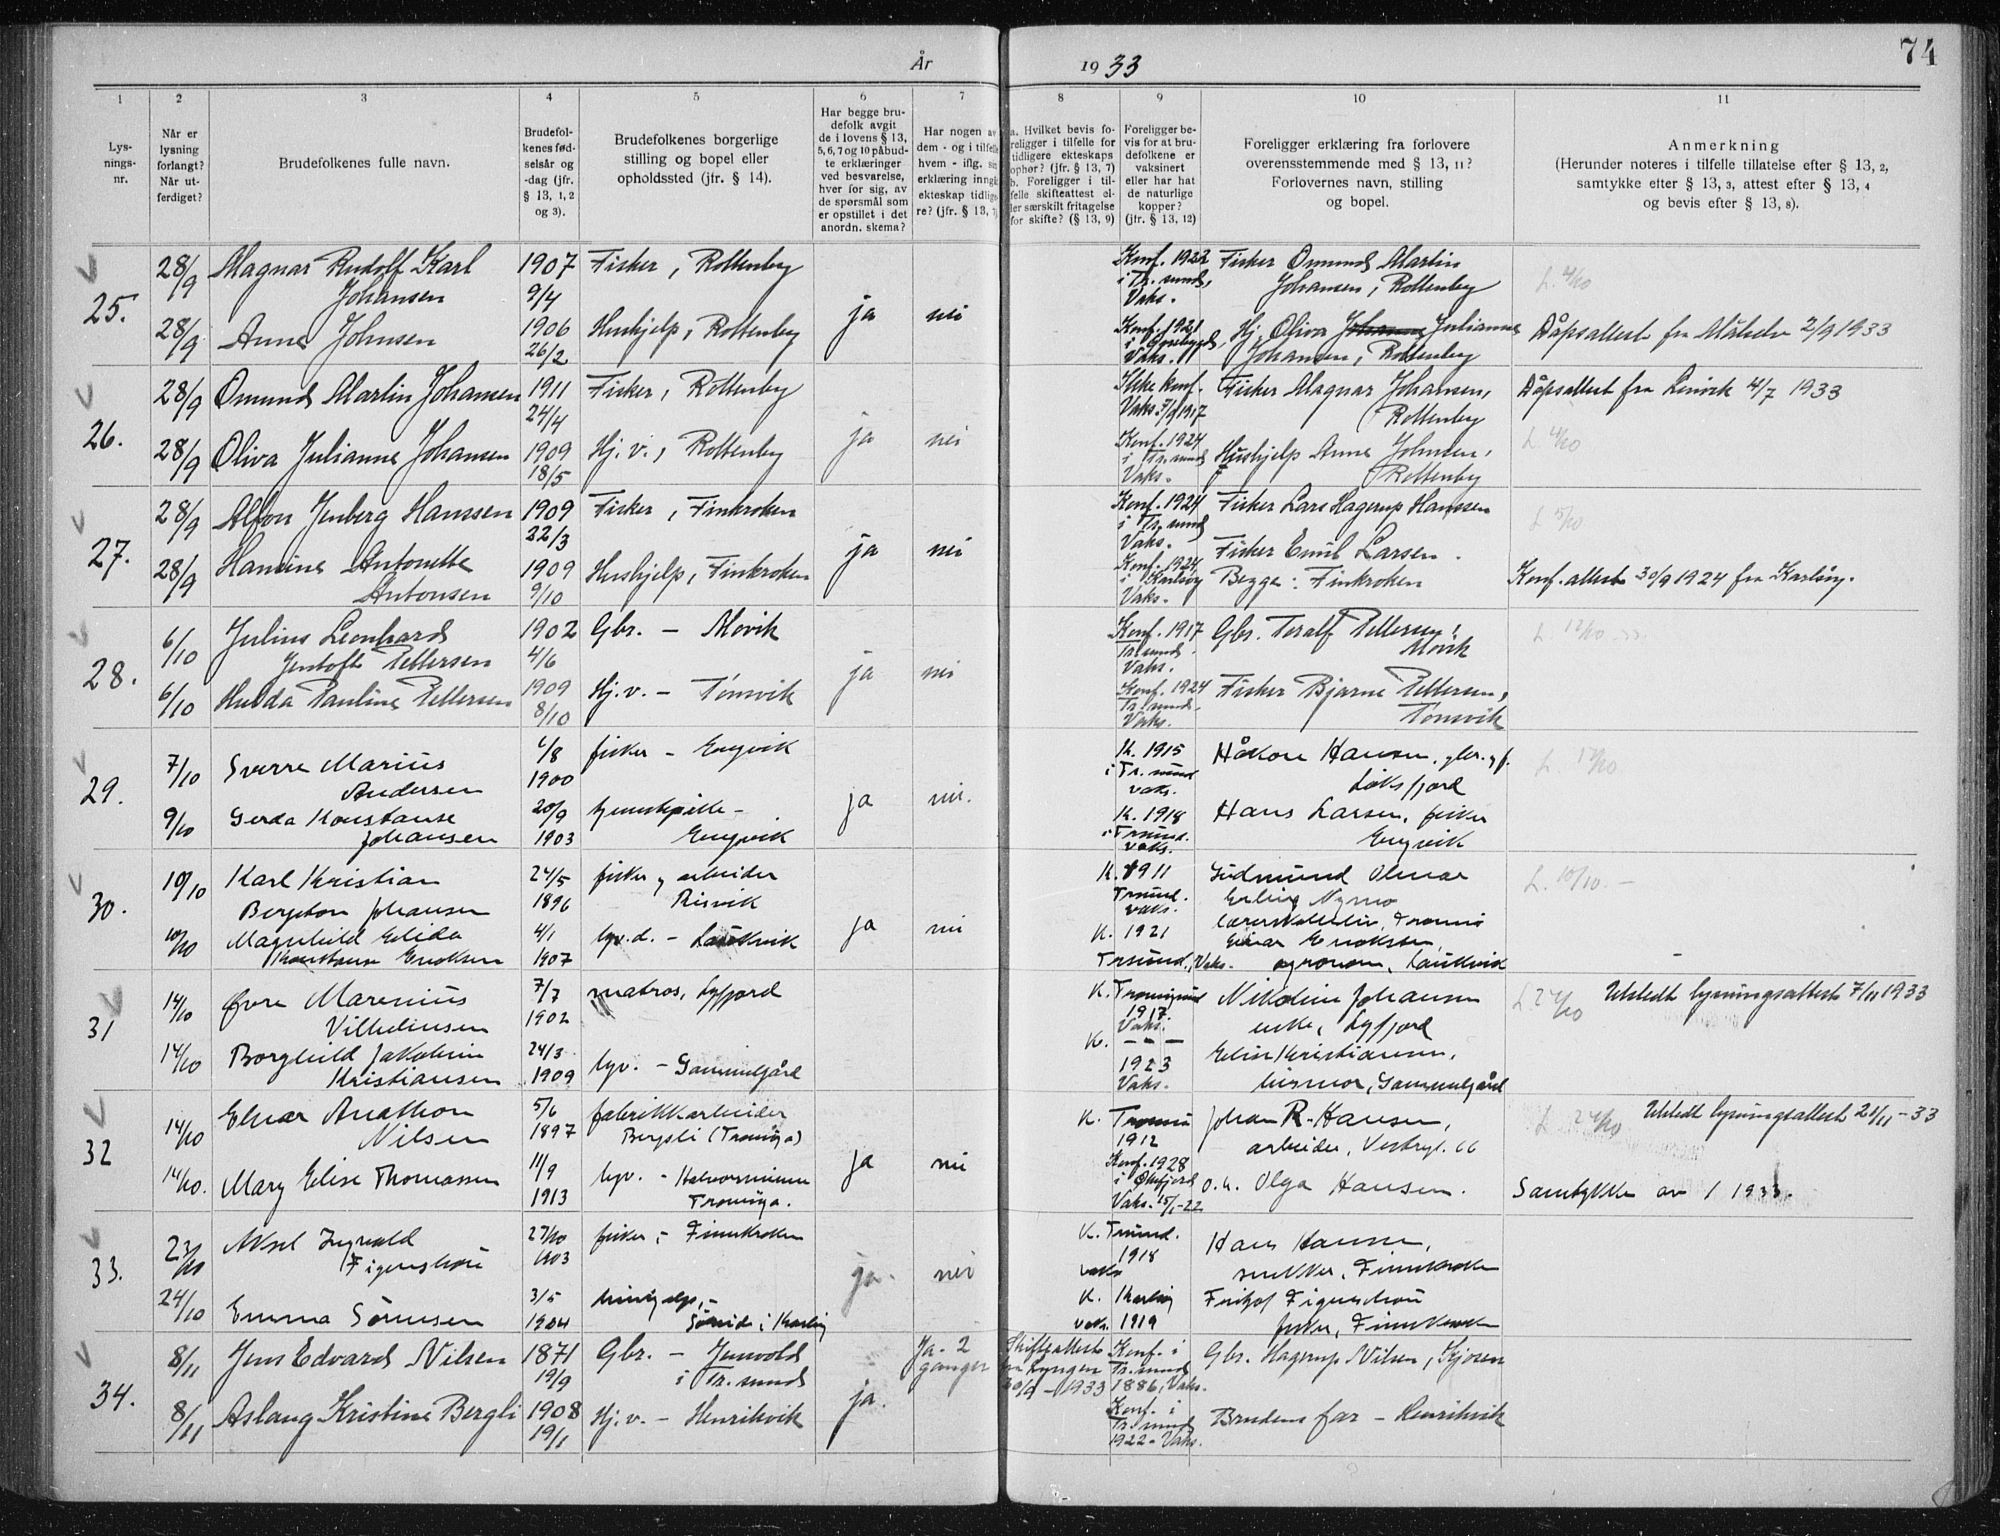 År 1933
74
1 2 3 4 5 6 7 8 9 10 11
Lys-
nings-
nr.
Når er
lysning
forlangt?
Når ut-
ferdiget?
Brudefolkenes fulle navn.
Brudefol-
kenes fød-
selsår og
-dag (jfr.
§ 13, 1, 2
og 3).
Brudefolkenes borgerlige
stilling og bopel eller
opholdssted (jfr. § 14).
Har begge bru-
defolk avgit
de i lovens § 13,
5, 6, 7 og 10 påbud-
te erklæringer
ved besvarelse,
hver for sig, av
de spørsmål som
er opstillet i det
anordn. skema?
Har nogen av
dem - og i tilfelle
hvem - iflg. sin
erklæring inngå
ekteskap tidlige-
re? (jfr. § 13, 7)
a. Hvilket bevis fo-
religger i tilfelle for
tidligere ekteskaps
ophør? (jfr. § 13, 7)
b. Foreligger i til-
felle skifteattest el-
ler særskilt fritagelse
for skifte? (§ 13, 9)
Foreligger be-
vis for at bru-
defolkene er
vaksinert
eller har hat
de naturlige
kopper?
(jfr. § 13, 12)
Foreligger erklæring fra forlovere
overensstemmende med § 13, 11?
Forlovernes navn, stilling
og bopel.
Anmerkning
(Herunder noteres i tilfelle tillatelse efter § 13, 2,
samtykke efter § 13, 3, attest efter § 13, 4
og bevis efter § 13, 8).
25.
28/9 Magnar Rudolf Karl 1907 Fisker, Rottenby Konf. 1922 Fisker Ømund Martin
Johansen 9/4 i Tr.sund, Johansen, Rottenby L. 4/10
Vaks.
ja nei
28/9 Anna Johnsen 1906 Hushjelp, Rottenby Konf. 1921 Hj. Oliva Julianne Dåpsattest fra Målselv 2/9 1933
26/2 Vaks. Johansen, Rottenby
26.
28/9 Ømund Martin Johansen 1911 Fisker, Rottenby Ikke konf. Fisker Magnar Johansen, Dåpsattest fra Lenvik 4/7 1933
24/4 Vaks 1917 Rottenby
ja nei
28/9 Oliva Julianne Johansen 1909 Hj. v., Rottenby Konf. 1924 Hushjelp Anna Johnsen, L. 4/10
18/5 i Tr.sund Rottenby
Vaks.
27.
28/9 Alfon Jenberg Hanssen 1909 Fisker, Finkroken Konf. 1924 Fisker Lars Hagerup Hanssen L 5/10
22/3 i Tr.sund
ja nei Vaks. Fisker Emil Larsen.
28/9 Hansine Antonette 1909 Hushjelp, Finkroken Konf. 1924 Begge: Finkroken Konf. attest 30/9 1924 fra Karlsøy.
Antonsen 9/10 i Karlsøy
Vaks.
28.
6/10 Julius Leonhard 1902 Gbr. – Movik Konf. 1917 Gbr. Toralf Pettersen, L. 12/10 33
Jentoft Pettersen 4/6 Tr.sund. Movik
Vaks.
ja nei
6/10 Hulda Pauline Pettersen 1909 Hj. v. – Tønsvik Konf. 1924 Fisker Bjarne Pettersen,
8/10 Tr.sund. Tønsvik
Vaks.
29.
7/10 Sverre Marius fisker – Engvik K. 1915 Håkon Hansen, gbr.
Andersen 1900 i Tr.sund
vaks.
ja nei.
9/10 Gerda Konstanse 20/9 K. 1918 Hans Larsen, fisker
Johansen 1903 Engvik i Trsund. Engvik
vaks.
30.
10/10 Karl Kristian 24/5 fisker og arbeider K. 1911 Gudmund Olmar L. 10/10. –
Bergeton Johansen 1896 Risvik Trsund. Erling Nymo
vaks.
10/10 Magnhild Elida 4/1 ja nei K. 1921
Konstanse Eriksen 1907 Trsund, Vaks. agronom, Laukvik
31
14/10 Øvre Marenius 7/7 matros, Lyfjord K. Tromsøysund Nikoline Johansen L 24/10 Utstedt lysningsattest 7/11 1933
Vilhelmsen 1902 1917 enke, Lyfjord
Vaks.
14/10 Borghild Jakobine 24/3 K. – – – Elise Kristiansen,
Kristiansen 1909 1923
Vaks.
32
14/10 Einar Anathon 5/6 fabrikkarbeider K. Tromsø Johan R. Hansen, L 24/10 Utstedt lysningsattest 21/11 - 33
Nilsen 1897 Bergsli 1912 arbeider, Vestrgt. 66
ja nei Konf. 1928
14/10. Mary Elise Thomassen 11/9 i Øksfjord O. h. Olga Hansen. Samtykke av / 1933.
1913 Vaks. 15/1-22
33.
23/10 Aksel Ingvald 27/10 fisker, – Finnkroken K. Trsund. Hans Hansen,
Figenschou 1903 1918 snekker, Finnkroken
ja. nei vaks
24/10 Emma Sørensen 3/5 K. Karlsøy Fritjof Figenschou
1904 vaks. 1919 fisker, Finnkroken
34.
8/11 Jens Edvard Nilsen 1871 Gbr. – Jenvold Ja - 2 Skifteattest Konf. i Gbr. Hagerup Nilsen, Kjosen
19/9 i Tr.sund ganger fra Lyngen Tr.sund
1933 1886, Vaks.
ja.
8/11 Aslaug Kristine Bergli 1908 Hj. v. – Henrikvik Konf. i Brudens far – Henrikvik
19/1 Tr.sund
1922 - Vaks.